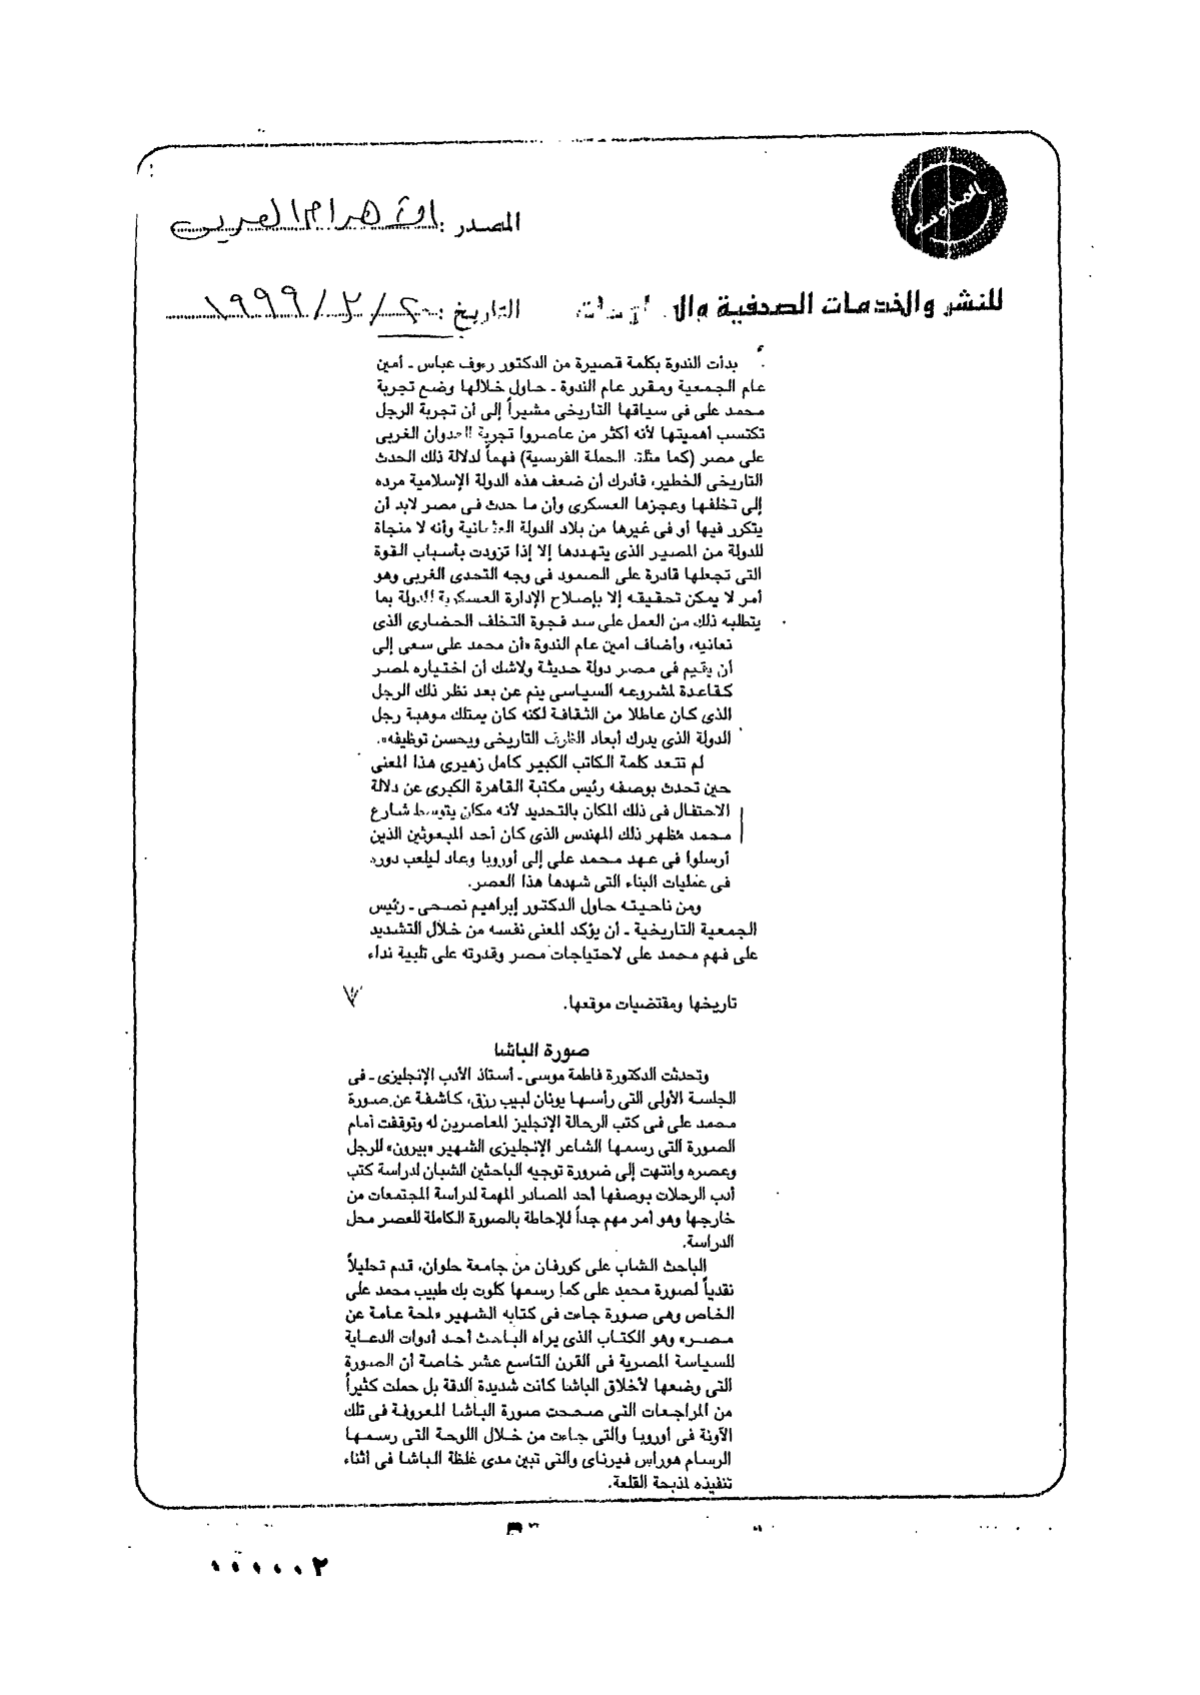 المصدر : الأهرام العربى
للنشر والخدمات الصحفية
التاريخ : ٢٠/٢/١٩٩٩
بدأت الندوة بكلمة قصيرة من الدكتور رءوف عباس ـ أمين
عام الجمعية ومقرر عام الندوة ـ حاول خلالها وضع تجربة
محمد على فى سياقها التاريخى مشيراً إلى أن تجربة الرجل
تكتسب أهميتها لأنه أكثر من عاصروا تجربة العدوان الغربى
على مصر (كما مثلته الحملة الفرنسية) فهماً لدلالة ذلك الحدث
التاريخى الخطير، فأدرك أن ضعف هذه الدولة الإسلامية مرده
إلى تخلفها وعجزها العسكرى وأن ما حدث فى مصر لابد أن
يتكرر فيها أو فى غيرها من بلاد الدولة العثمانية وأنه لا منجاة
للدولة من المصير الذى يتهددها إلا إذا تزودت بأسباب القوة
التى تجعلها قادرة على الصمود فى وجه التحدى الغربى وهو
أمر لا يمكن تحقيقه إلا بإصلاح الإدارة العسكرية للدولة بما
يتطلبه ذلك من العمل على سد فجوة التخلف الحضارى الذى
تعانيه، وأضاف أمين عام الندوة «أن محمد على سعى إلى
أن يقيم فى مصر دولة حديثة ولاشك أن اختياره لمصر
كقاعدة لمشروعه السياسى ينم عن بعد نظر ذلك الرجل
الذى كان عاطلا من الثقافة لكنه كان يمتلك موهبة رجل
الدولة الذى يدرك أبعاد الظرف التاريخى ويحسن توظيفه».
لم تتعد كلمة الكاتب الكبير كامل زهيرى هذا المعنى
حين تحدث بوصفه رئيس مكتبة القاهرة الكبرى عن دلالة
الاحتفال فى ذلك المكان بالتحديد لأنه مكان يتوسط شارع
محمد مظهر ذلك المهندس الذى كان أحد المبعوثين الذين
أرسلوا فى عهد محمد على إلى أوروبا وعاد ليلعب دوره
فى عمليات البناء التى شهدها هذا العصر.
ومن ناحيته حاول الدكتور إبراهيم نصحى ـ رئيس
الجمعية التاريخية ـ أن يؤكد المعنى نفسه من خلال التشديد
على فهم محمد على لاحتياجات مصر وقدرته على تلبية نداء
تاريخها ومقتضيات موقعها.
صورة الباشا
وتحدثت الدكتورة فاطمة موسى ـ أستاذ الأدب الإنجليزى ـ فى
الجلسة الأولى التى رأسها يونان لبيب رزق، كاشفة عن صورة
محمد على فى كتب الرحالة الإنجليز المعاصرين له وتوقفت أمام
الصورة التى رسمها الشاعر الإنجليزى الشهير «بيرون» للرجل
وعصره وانتهت إلى ضرورة توجيه الباحثين الشبان لدراسة كتب
أدب الرحلات بوصفها أحد المصادر المهمة لدراسة المجتمعات من
خارجها وهو أمر مهم جداً للإحاطة بالصورة الكاملة للعصر محل
الدراسة.
الباحث الشاب على كورفان من جامعة حلوان، قدم تحليلاً
نقدياً لصورة محمد على كما رسمها كلوت بك طبيب محمد على
الخاص وهى صورة جاءت فى كتابه الشهير «لمحة عامة عن
مصر» وهو الكتاب الذى يراه الباحث أحد أدوات الدعاية
للسياسة المصرية فى القرن التاسع عشر خاصة أن الصورة
التى وضعها لأخلاق الباشا كانت شديدة الدقة بل حملت كثيراً
من المراجعات التى صححت صورة الباشا المعروفة فى تلك
الآونة فى أوروبا والتى جاءت من خلال اللوحة التى رسمها
الرسام هوراس فيرناى والتى تبين مدى غلظة الباشا فى أثناء
تنفيذه لمذبحة القلعة.